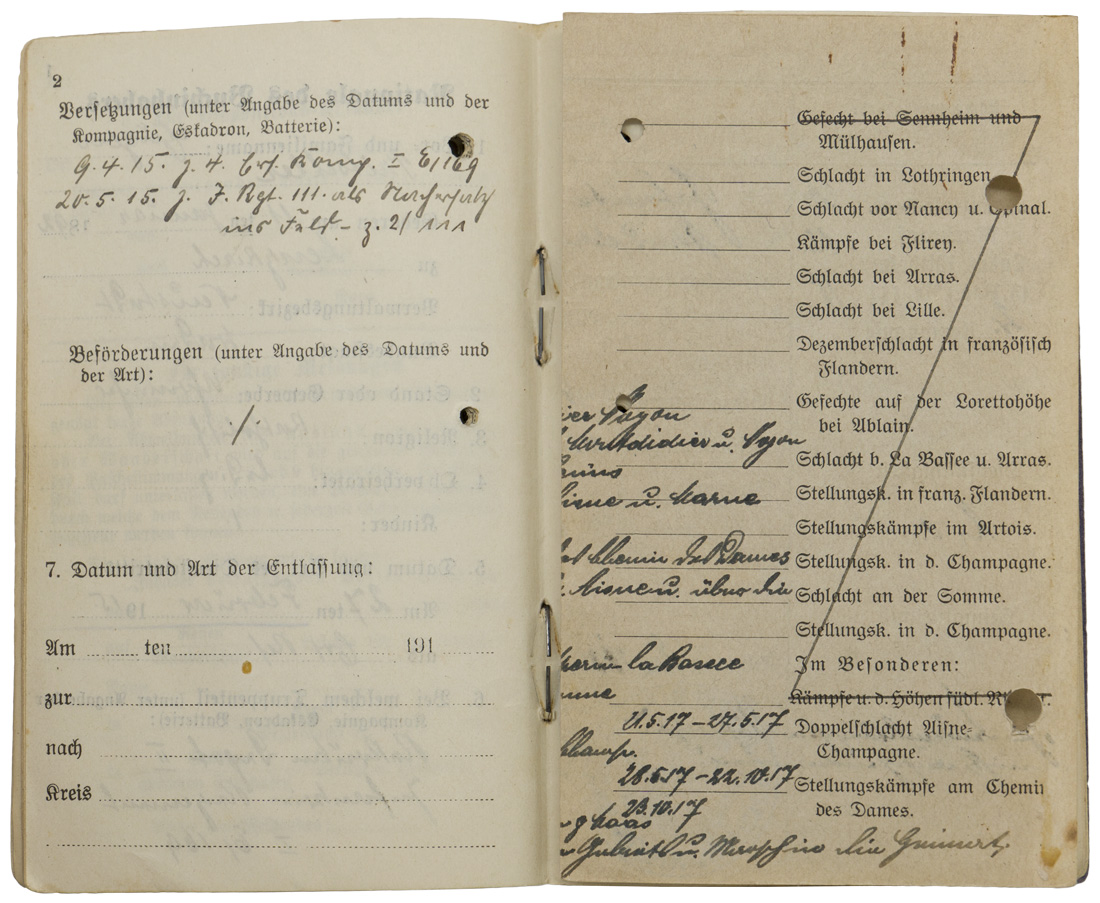 2
Versetzungen (unter Angabe des Datums und der
Kompagnie, Eskadron, Batterie):
9.4.15. z. 4. Ers. Komp. I E/169
20.5.15. z. J. Rgt. 111. als Nachersatz
ins Feld – z. 2/111
Beförderungen (unter Angabe des Datums und
der Art):
/.
7. Datum und Art der Entlassung:
Am ten 191
zur
nach
Kreis
Gefecht bei Sennheim und
Mülhausen.
Schlacht in Lothringen.
Schlacht vor Nancy u. Epinal.
Kämpfe bei Flirey.
Schlacht bei Arras.
Schlacht bei Lille.
Dezemberschlacht in französisch
Flandern.
Gefechte auf der Lorettohöhe
bei Ablain.
Noyon
Montdidier u. Noyon
Schlacht b. La Bassee u. Arras.
Aisne u. Marne
Stellungsk. in franz. Flandern.
Stellungskämpfe im Artois.
Chemin des Dames
Stellungsk. in d. Champagne.
Aisne u. über die
Schlacht an der Somme.
Stellungsk. in d. Champagne.
la Bassee
Im Besonderen:
Kämpfe u. d. Höhen südl.
21.5.17 – 27.5.17 Doppelschlacht Aisne-
Champagne.
28.5.17 – 22.10.17 Stellungskämpfe am Chemin
23.10.17 des Dames.
u.